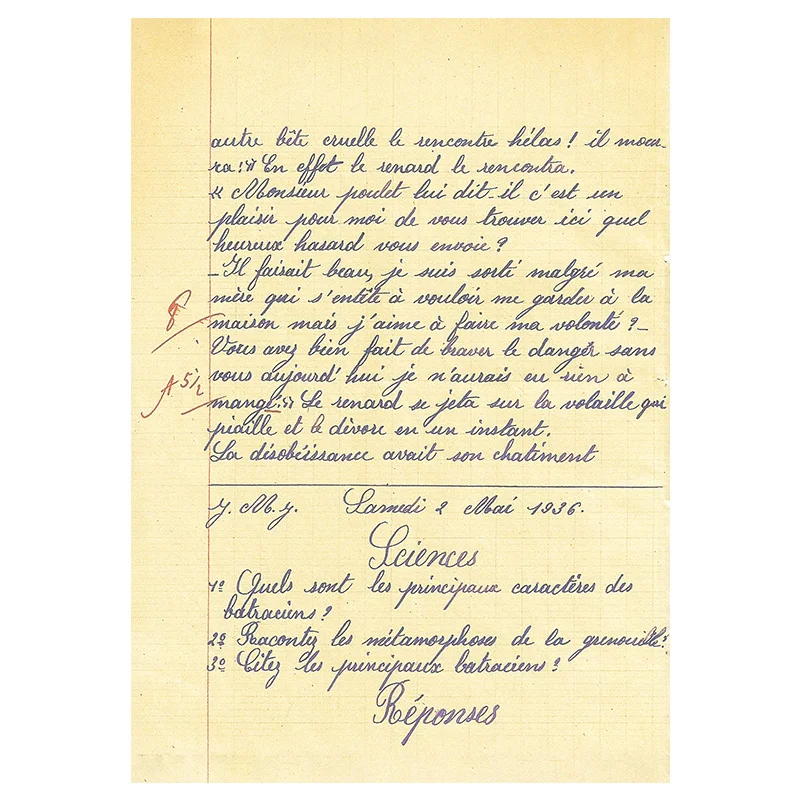 autre bête cruelle le rencontre hélas! il mour-
ra!» En effet le renard le rencontra.
« Monsieur poulet lui dit-il c'est un
plaisir pour moi de vous trouver ici quel
heureux hasard vous envoie?
- Il faisait beau, je suis sorti malgré ma
mère qui s'entête à vouloir me garder à la
8
maison mais j'aime à faire ma volonté? -
Vous avez bien fait de braver le danger sans
vous aujourd'hui je n'aurais eu rien à
A 5 1/2
mangé.» Le renard se jeta sur la volaille qui
piaille et le dévore en un instant.
La désobéissance avait son chatiment
J. M. J. Samedi 2 Mai 1936.
Sciences
1º Quels sont les principaux caractères des
batraciens?
2º Racontez les métamorphoses de la grenouille?
3º Citez les principaux batraciens?
Réponses